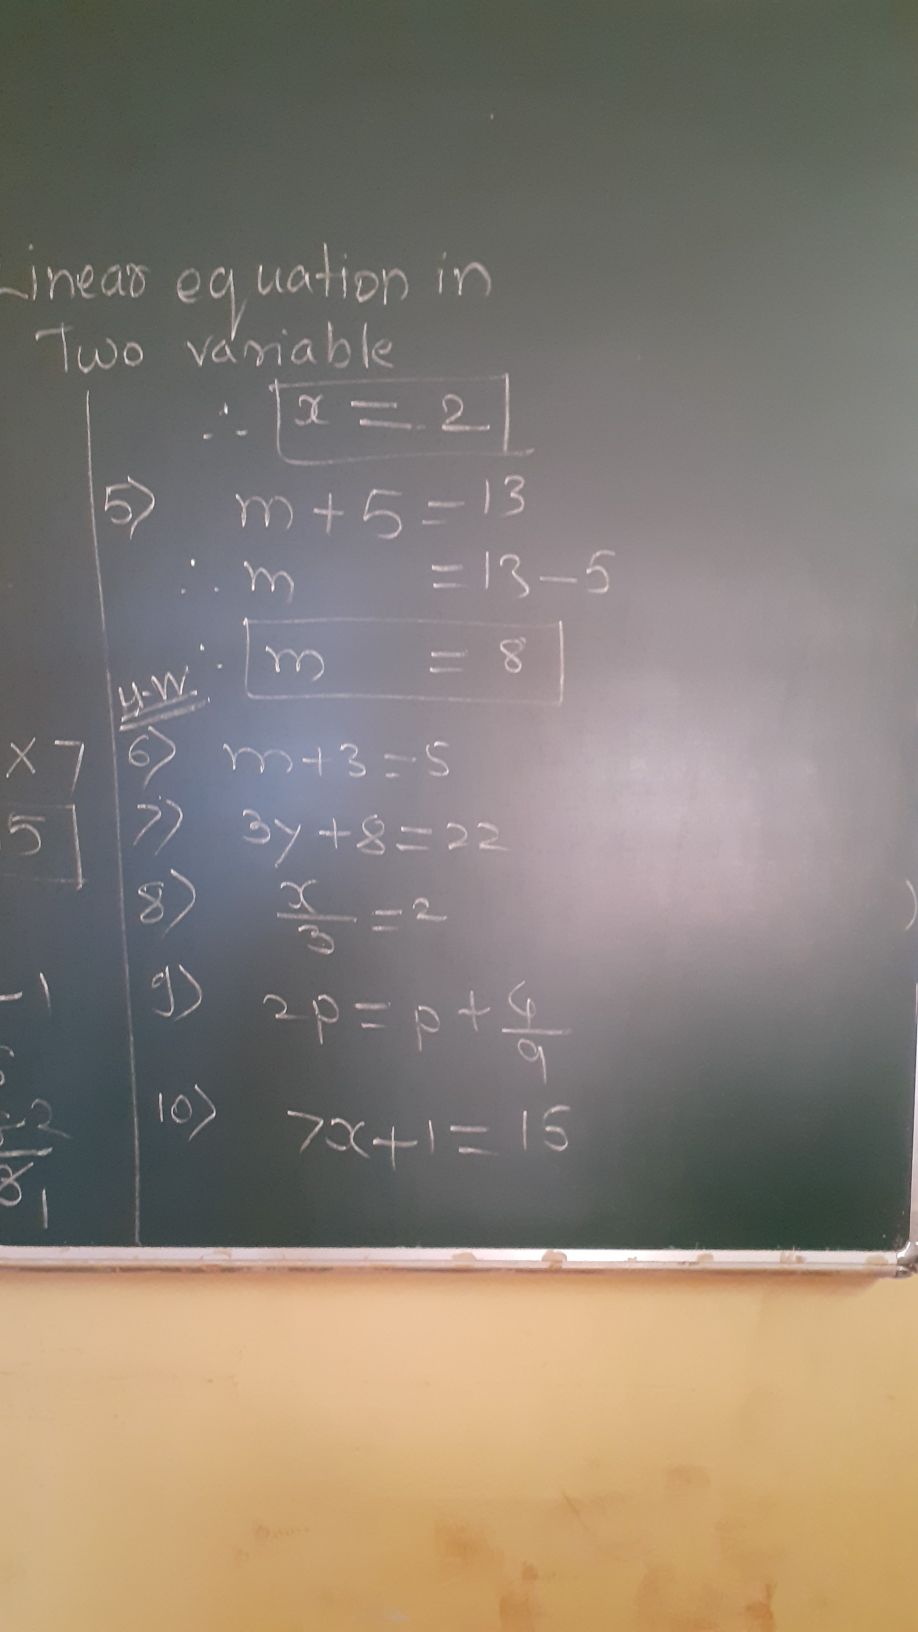 Linear equation in
Two variable
∴ x = 2
5) m + 5 = 13
∴ m = 13 - 5
∴ m = 8
H.W.
6) m + 3 = 5
7) 3y + 8 = 22
8) x/3 = 2
9) 2p = p + 4/9
10) 7x + 1 = 15
× 7
5
- 1
2
8 1